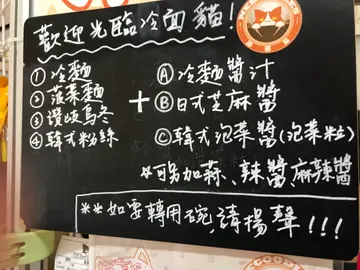 歡迎光臨冷面貓!
① 冷麵 Ⓐ 冷麵醬汁
② 菠菜麵 + Ⓑ 日式芝麻醬
③ 讚岐烏冬 Ⓒ 韓式泡菜醬(泡菜粒)
④ 韓式粉絲
*可另加蒜、辣醬、麻辣醬
**如要轉用碗,請揚聲!!!